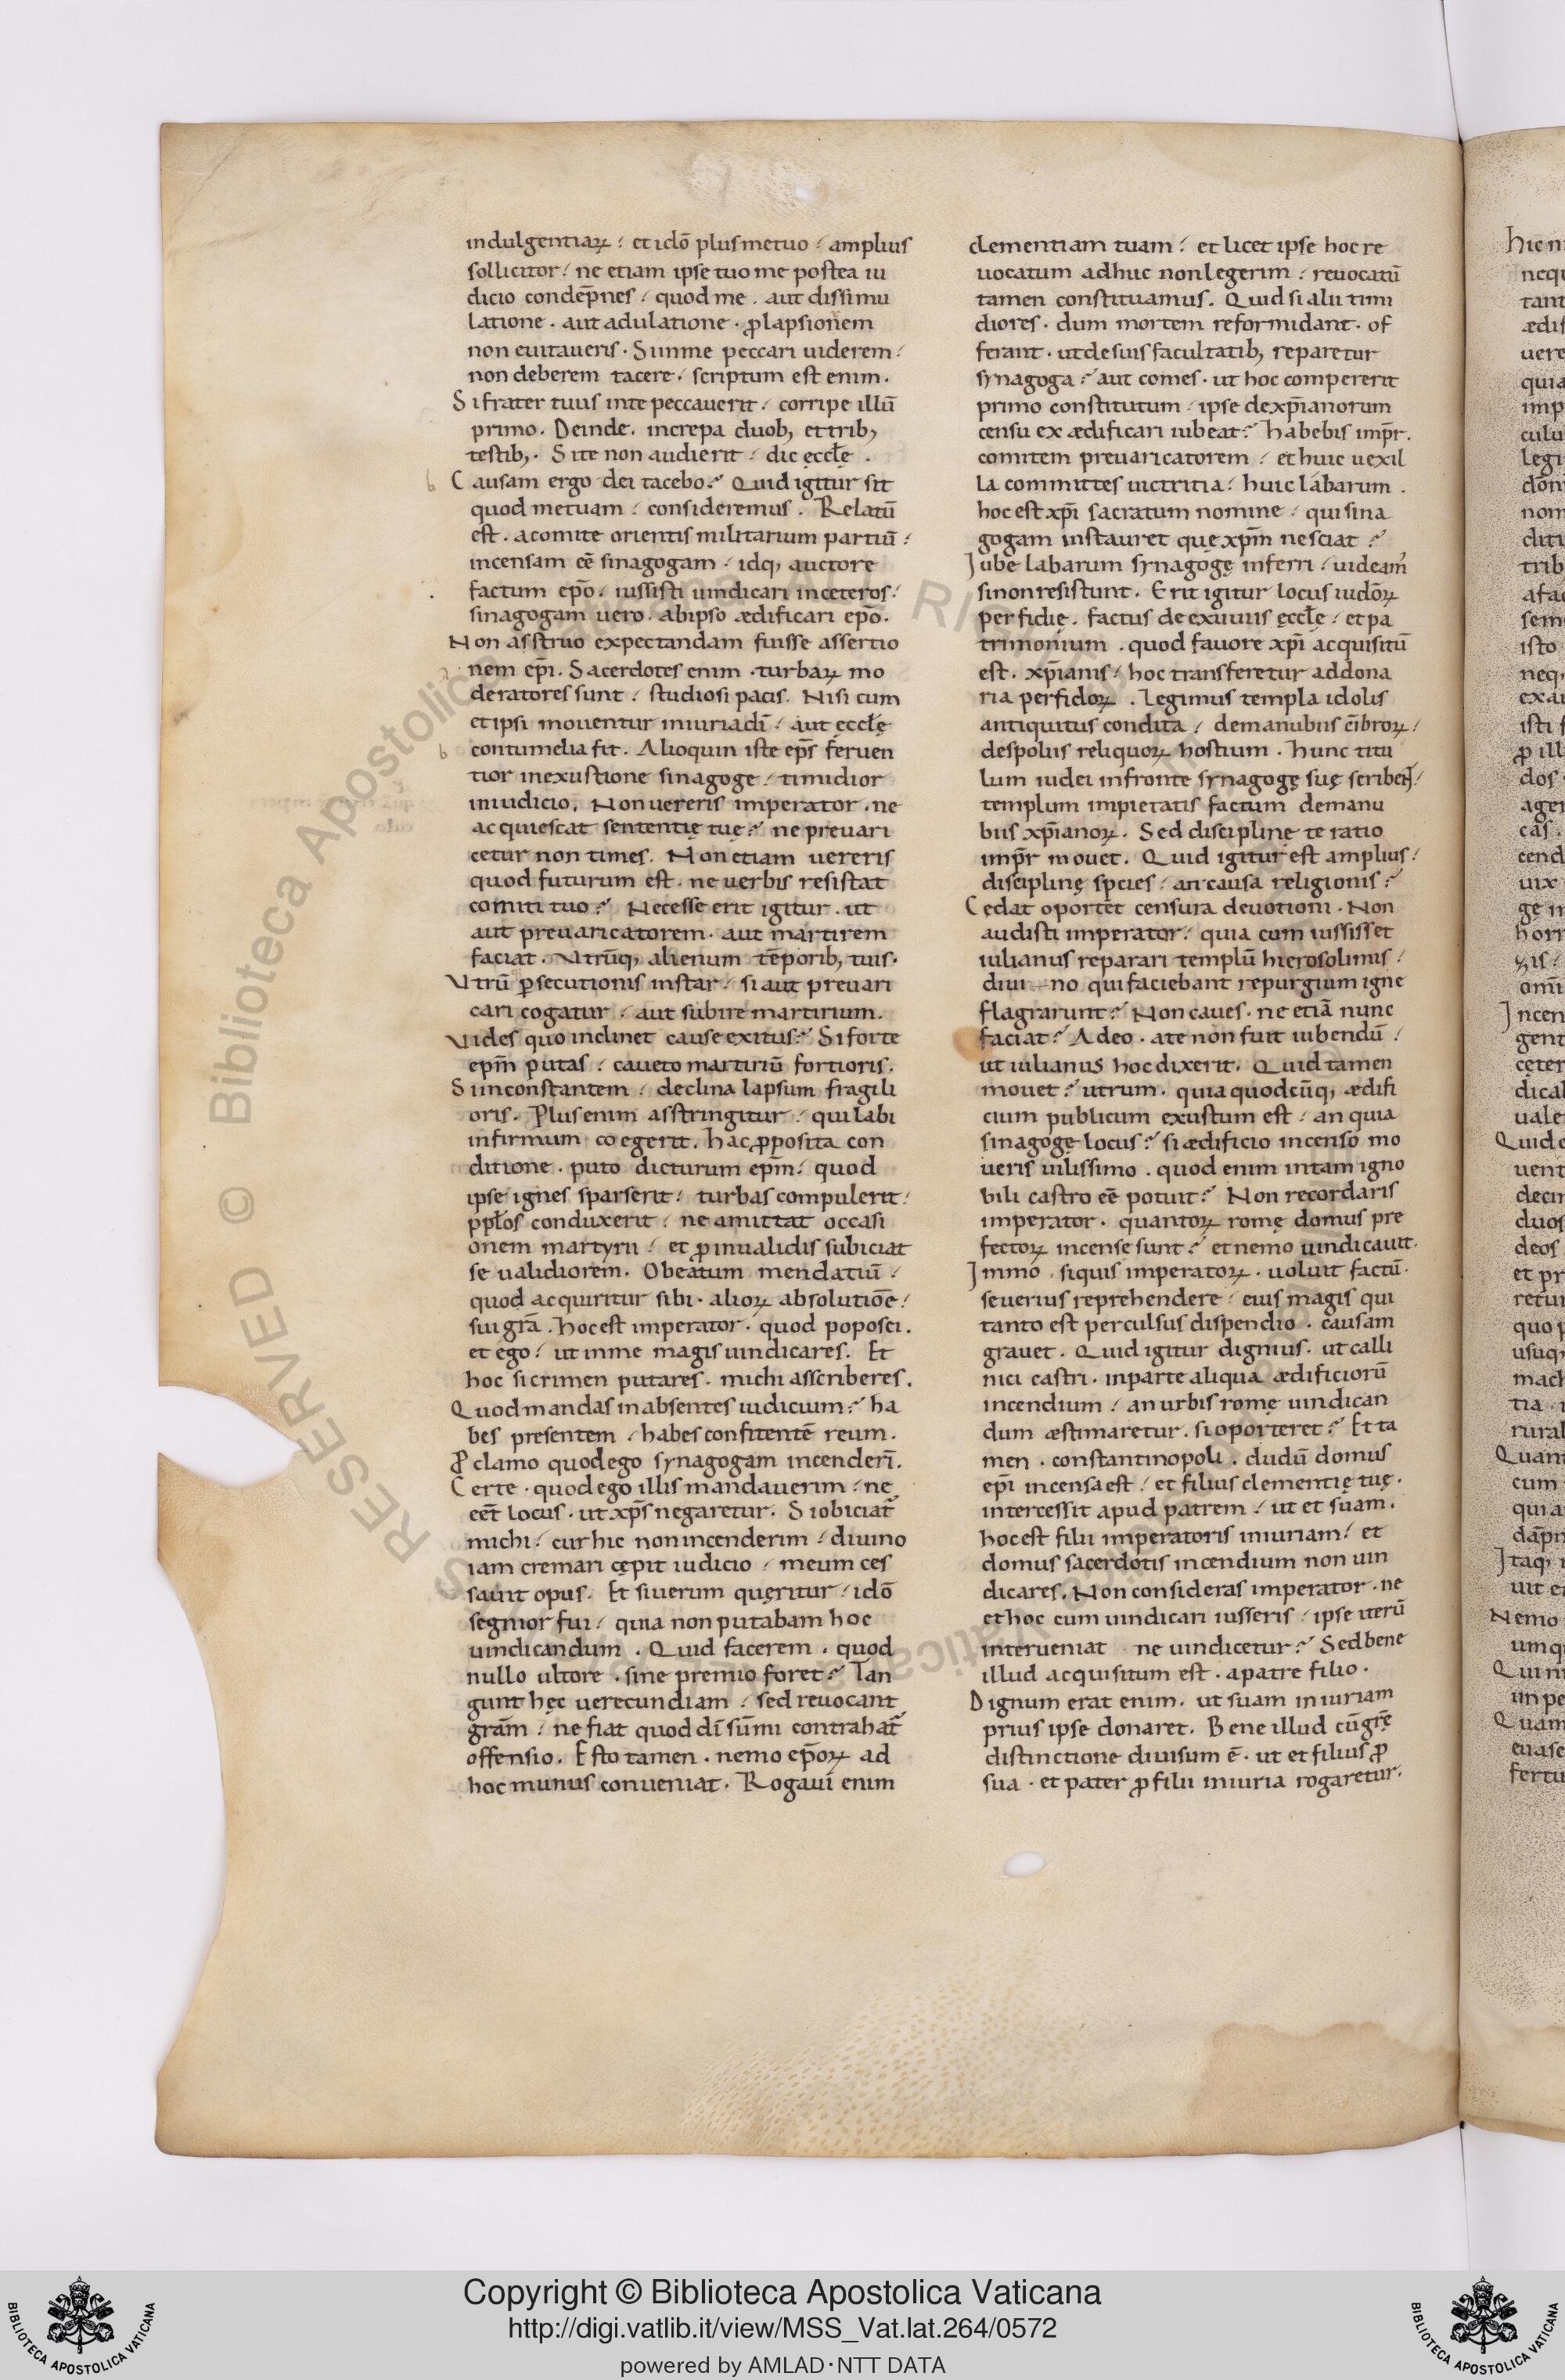 indulgentiaꝝ / et idō plus metuo / amplius
sollicitor / ne etiam ipse tuo me postea iu
dicio condēpnes / quod me . aut dissimu
latione . aut adulatione . ꝓlapsionem
non euitaueris . Si in me peccari uiderem /
non deberem tacere / scriptum est enim .
Si frater tuus in te peccauerit / corripe illū
primo . Deinde . increpa duob; et trib;
testib; . Si te non audierit / dic ęccłę .
Causam ergo dei tacebo? Quid igitur sit
quod metuam / consideremus . Relatū
est . a comite orientis militarium partiū /
incensam eē sinagogam / idq; auctore
factum ep̄o / iussisti uindicari in ceteros /
sinagogam uero . ab ipso ædificari ep̄o .
Non asstruo expectandam fuisse assertio
nem ep̄i . Sacerdotes enim . turbaꝝ mo
deratores sunt / studiosi pacis . Nisi cum
et ipsi mouentur iniuria dī / aut ęccłę
contumelia fit . Alioquin iste ep̄s feruen
tior in exustione sinagoge / timidior
in iudicio . Non uereris imperator . ne
acquiescat sententię tuę? ne preuari
cetur non times . Non etiam uereris
quod futurum est . ne uerbis resistat
comiti tuo? Necesse erit igitur . ut
aut preuaricatorem . aut martirem
faciat . Vtrūq; alienum tēporib; tuis .
Vtrū ꝑsecutionis instar / si aut preuari
cari cogatur / aut subire martirium .
Vides quo inclinet cause exitus? Si forte
ep̄m putas / caueto martiriū fortioris .
Si inconstantem / declina lapsum fragili
oris . Plus enim asstringitur / qui labi
infirmum coegerit . hac ꝓposita con
ditione . puto dicturum ep̄m / quod
ipse ignes sparserit / turbas compulerit /
pplōs conduxerit / ne amittat occasi
onem martyrii / et ꝓ inualidis subiciat
se ualidiorem . O beatum mendatiū /
quod acquiritur sibi . alioꝝ absolutiōe /
sui grā . Hoc est imperator . quod poposci .
et ego / ut in me magis uindicares . Et
hoc si crimen putares . michi asscriberes .
Quod mandas in absentes iudicium? ha
bes presentem / habes confitentē reum .
Ꝓclamo quod ego synagogam incenderī .
Certe . quod ego illis mandauerim / ne
eēt locus . ut xp̄s negaretur . Si obiciat᷑
michi / cur hic non incenderim / diuino
iam cremari cępit iudicio / meum ces
sauit opus . Et si uerum quęritur / idō
segnior fui / quia non putabam hoc
uindicandum . Quid facerem . quod
nullo ultore . sine premio foret? Tan
gunt hęc uerecundiam / sed reuocant
grām / ne fiat quod dī sūmi contrahat᷑
offensio . Esto tamen . nemo ep̄oꝝ ad
hoc munus conueniat . Rogaui enim
clementiam tuam / et licet ipse hoc re
uocatum adhuc non legerim / reuocatū
tamen constituamus . Quid si alii timi
diores . dum mortem reformidant . of
ferant . ut de suis facultatib; reparetur
synagoga? aut comes . ut hoc compererit
primo constitutum / ipse de xp̄ianorum
censu ex ædificari iubeat? Habebis imp̄r .
comitem preuaricatorem / et huic uexil
la committes uictritia / huic labarum .
hoc est xp̄i sacratum nomine / qui sina
gogam instauret quę xp̄m nesciat?
Iube labarum synagogę inferri / uideam᷒
si non resistunt . Erit igitur locus iudōꝝ
perfidię . factus de exuuiis ęccłę / et pa
trimonium . quod fauore xp̄i acquisitū
est . xp̄ianis / hoc transferetur ad dona
ria perfidoꝝ . Legimus templa idolis
antiquitus condita / de manubiis cībroꝝ /
de spoliis reliquoꝝ hostium . Hunc titu
lum iudei in fronte synagogę suę scribent /
templum impietatis factum de manu
biis xp̄ianoꝝ . Sed disciplinę te ratio
imp̄r mouet . Quid igitur est amplius /
disciplinę species / an causa religionis?
Cedat oportet censura deuotioni . Non
audisti imperator / quia cum iussisset
iulianus reparari templū hierosolimis /
diui—no qui faciebant repurgium igne
flagrarunt? Non caues . ne etiā nunc
faciat? Adeo . a te non fuit iubendū /
ut iulianus hoc dixerit . Quid tamen
mouet? utrum . quia quodcūq; ædifi
cium publicum exustum est / an quia
sinagogę locus? si ædificio incenso mo
ueris uilissimo . quod enim in tam igno
bili castro eē potuit? Non recordaris
imperator . quantoꝝ romę domus pre
fectoꝝ incense sunt? et nemo uindicauit .
Immo . siquis imperatoꝝ . uoluit factū .
seuerius reprehendere / eius magis qui
tanto est perculsus dispendio . causam
grauet . Quid igitur dignius . ut calli
nici castri . in parte aliqua ædificiorū
incendium / an urbis romę uindican
dum æstimaretur . si oporteret? Et ta
men . constantinopoli . dudū domus
ep̄i incensa est / et filius clementię tuę .
intercessit apud patrem / ut et suam .
hoc est filii imperatoris iniuriam / et
domus sacerdotis incendium non uin
dicares . Non consideras imperator . ne
et hoc cum uindicari iusseris / ipse iterū
interueniat ne uindicetur? Sed bene
illud acquisitum est . a patre filio .
Dignum erat enim . ut suam iniuriam
prius ipse donaret . Bene illud cū grę̄
distinctione diuisum ē . ut et filius ꝓ
sua . et pater ꝓ filii iniuria rogaretur .
Copyright © Biblioteca Apostolica Vaticana
http://digi.vatlib.it/view/MSS_Vat.lat.264/0572
powered by AMLAD·NTT DATA